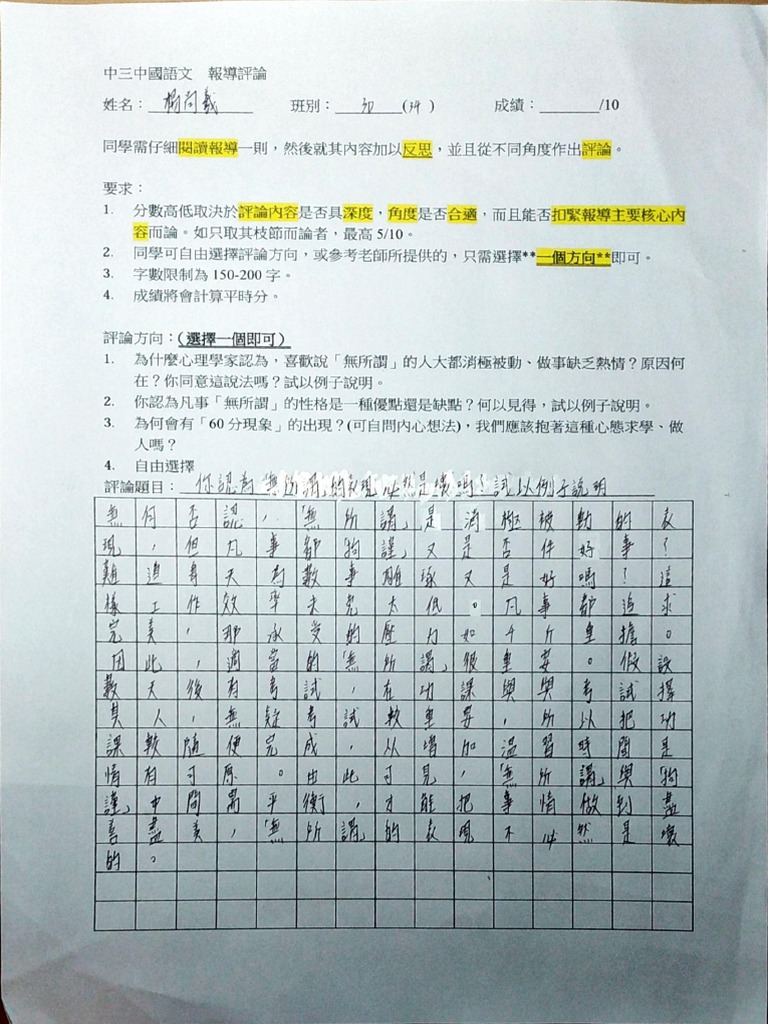 中三中國語文　報導評論
姓名：楊問羲　班別：3D(34)　成績：/10
同學需仔細閱讀報導一則，然後就其內容加以反思，並且從不同角度作出評論。
要求：
1. 分數高低取決於評論內容是否具深度，角度是否合適，而且能否扣緊報導主要核心內
容而論。如只取其枝節而論者，最高 5/10。
2. 同學可自由選擇評論方向，或參考老師所提供的，只需選擇**一個方向**即可。
3. 字數限制為 150-200 字。
4. 成績將會計算平時分。
評論方向：(選擇一個即可)
1. 為什麼心理學家認為，喜歡說「無所謂」的人大都消極被動、做事缺乏熱情？原因何
在？你同意這說法嗎？試以例子說明。
2. 你認為凡事「無所謂」的性格是一種優點還是缺點？何以見得，試以例子說明。
3. 為何會有「60 分現象」的出現？(可自問內心想法)，我們應該抱著這種心態求學、做
人嗎？
4. 自由選擇
評論題目：你認為「無所謂」的表現必然是壞嗎？試以例子說明
無何否認，「無所謂」是消極被動的表
現，但凡事都拘謹，又是否件好事？
難道每天為數事雕琢又是好嗎？這
樣工作效率未免太低。凡事都追求
完美，那承受的壓力如千斤重擔。
因此，適當的「無所謂」很重要。假設
數天後有考試，在功課與與考試擇
其人，無疑考試較重要，所以把功
課較隨便完成，以增加溫習時間是
情有可原。由此可見，「無所謂」與「拘
謹」中間需平衡，才能把事情做到盡
善盡美，「無所謂」的表現不必然是壞
的。